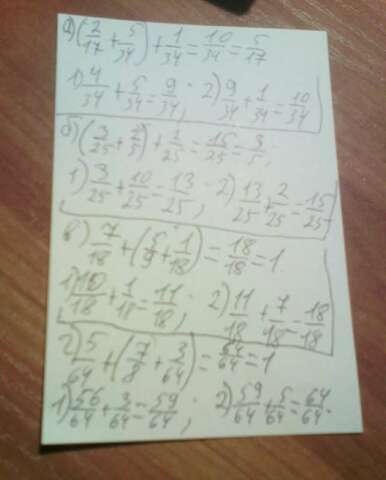 а) (2/17 + 5/34) + 1/34 = 10/34 = 5/17
1) 4/34 + 5/34 = 9/34; 2) 9/34 + 1/34 = 10/34
б) (3/25 + 2/5) + 2/25 = 15/25 = 3/5;
1) 3/25 + 10/25 = 13/25; 2) 13/25 + 2/25 = 15/25
в) 7/18 + (5/9 + 1/18) = 18/18 = 1
1) 10/18 + 1/18 = 11/18; 2) 11/18 + 7/18 = 18/18
г) 5/64 + (7/8 + 3/64) = 64/64 = 1
1) 56/64 + 3/64 = 59/64; 2) 59/64 + 5/64 = 64/64.